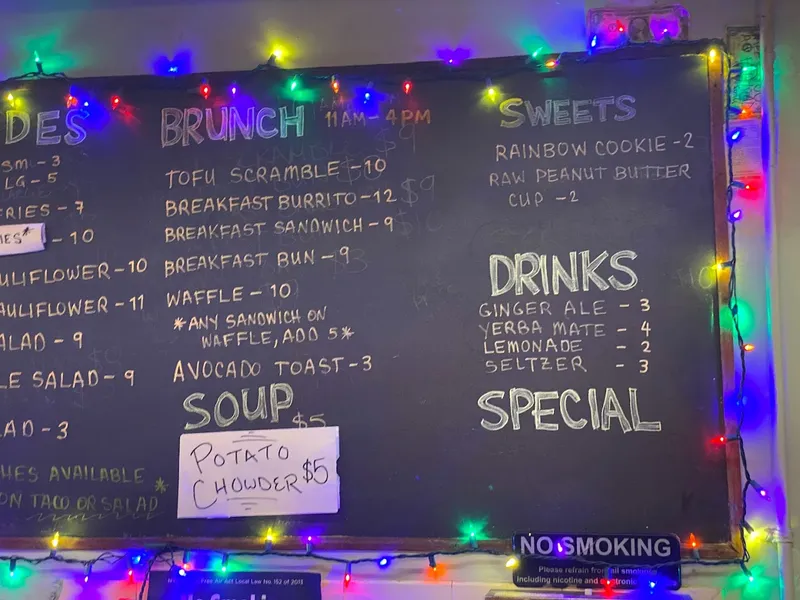 DES
SM - 3
LG - 5
FRIES - 7
IES* - 10
AULIFLOWER - 10
AULIFLOWER - 11
ALAD - 9
LE SALAD - 9
AD - 3
HES AVAILABLE *
ON TACO OR SALAD
BRUNCH 11AM - 4PM
TOFU SCRAMBLE - 10
BREAKFAST BURRITO - 12
BREAKFAST SANDWICH - 9
BREAKFAST BUN - 9
WAFFLE - 10
*ANY SANDWICH ON
WAFFLE, ADD 5*
AVOCADO TOAST - 3
SOUP $5
POTATO
CHOWDER $5
SWEETS
RAINBOW COOKIE - 2
RAW PEANUT BUTTER
CUP - 2
DRINKS
GINGER ALE - 3
YERBA MATE - 4
LEMONADE - 2
SELTZER - 3
SPECIAL
NO SMOKING
Please refrain from all smoking
including nicotine and electronic
Free Air Act Local Law No 152 of 2013